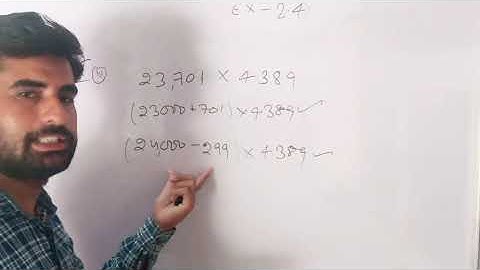 Ex-2.4
23,701 × 4389
(23000+701) × 4389 ✓
(24,000 - 299) × 4389 ✓